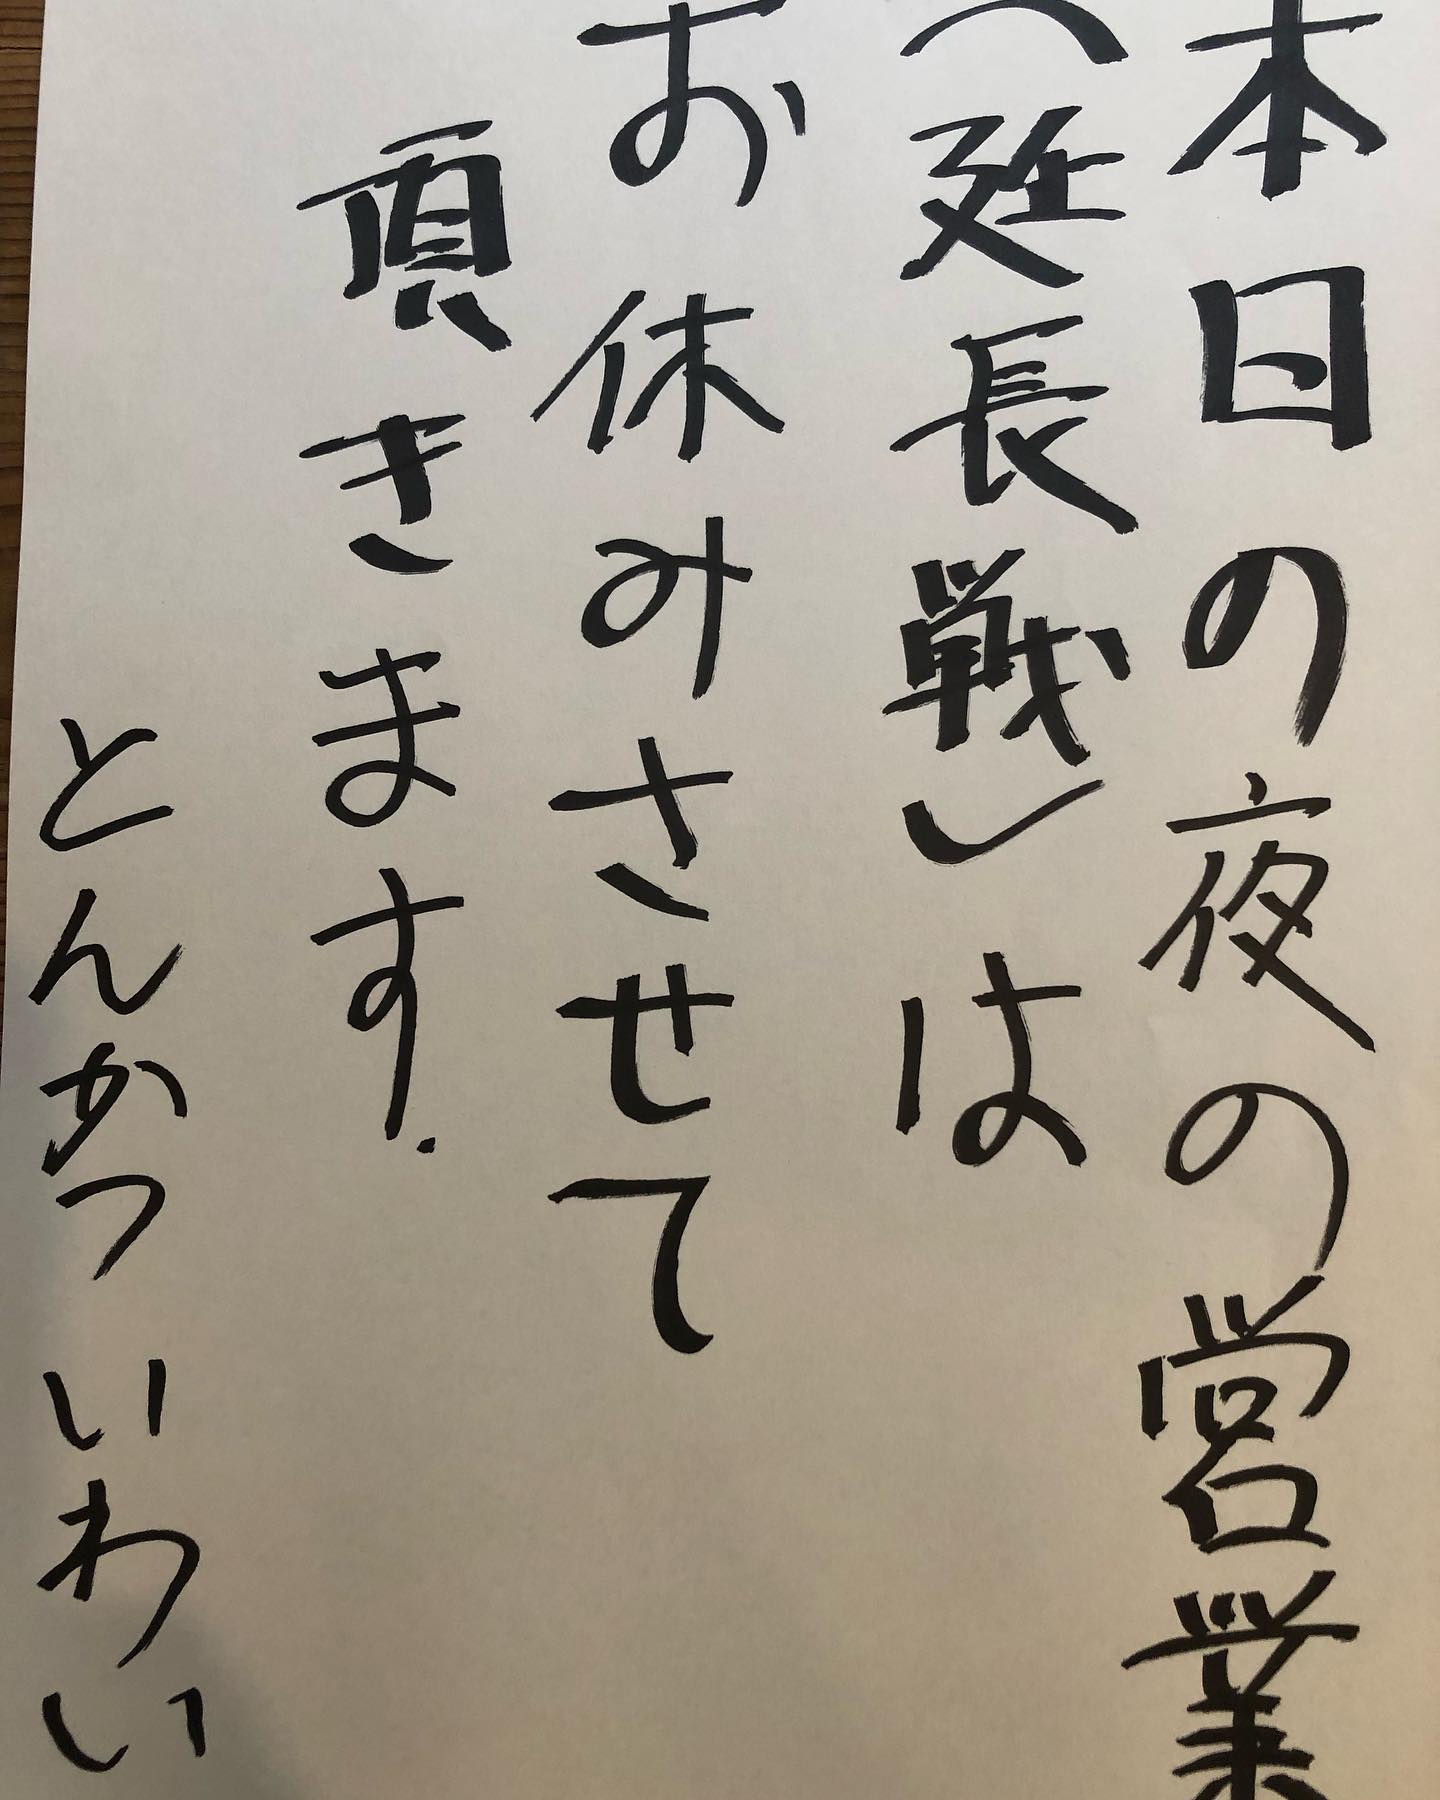 本日の夜の営業
（延長戦）は
お休みさせて
頂きます.
とんかつ いわい